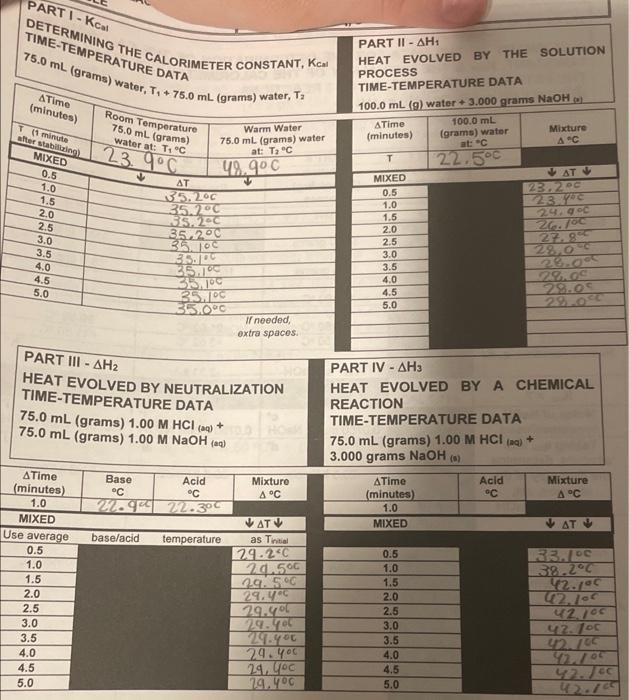 PART I - Kcal
DETERMINING THE CALORIMETER CONSTANT, Kcal
TIME-TEMPERATURE DATA
75.0 mL (grams) water, T₁ + 75.0 mL (grams) water, T₂
ΔTime (minutes)
Room Temperature 75.0 mL (grams) water at: T₁ °C
Warm Water 75.0 mL (grams) water at: T₂ °C
T (1 minute after stabilizing) 23.9°C 48.9°C
MIXED ↓ ΔT ↓
0.5 35.2°C
1.0 35.2°C
1.5 35.2°C
2.0 35.2°C
2.5 35.1°C
3.0 35.1°C
3.5 35.1°C
4.0 35.1°C
4.5 35.1°C
5.0 35.0°C
If needed,
extra spaces.
PART II - ΔH₁
HEAT EVOLVED BY THE SOLUTION
PROCESS
TIME-TEMPERATURE DATA
100.0 mL (g) water + 3.000 grams NaOH (s)
ΔTime (minutes)
100.0 mL (grams) water at: °C
Mixture Δ °C
T 22.5°C
MIXED ↓ ΔT ↓
0.5 23.2°C
1.0 23.4°C
1.5 24.9°C
2.0 26.1°C
2.5 27.8°C
3.0 28.0°C
3.5 28.0°C
4.0 28.0°
4.5 28.0°
5.0 28.0°C
PART III - ΔH₂
HEAT EVOLVED BY NEUTRALIZATION
TIME-TEMPERATURE DATA
75.0 mL (grams) 1.00 M HCl (aq) +
75.0 mL (grams) 1.00 M NaOH (aq)
ΔTime (minutes)
Base °C
Acid °C
Mixture Δ °C
1.0 22.9°C 22.30C
MIXED ↓ ΔT ↓
Use average base/acid temperature as TInitial
0.5 29.2°C
1.0 29.5°C
1.5 29.5°C
2.0 29.4°C
2.5 29.4°C
3.0 29.4°C
3.5 29.4°C
4.0 29.4°C
4.5 29.4°C
5.0 29.4°C
PART IV - ΔH₃
HEAT EVOLVED BY A CHEMICAL
REACTION
TIME-TEMPERATURE DATA
75.0 mL (grams) 1.00 M HCl (aq) +
3.000 grams NaOH (s)
ΔTime (minutes)
Acid °C
Mixture Δ °C
1.0
MIXED ↓ ΔT ↓
0.5 33.1°C
1.0 38.2°C
1.5 42.1°C
2.0 42.1°C
2.5 42.1°C
3.0 42.1°C
3.5 42.1°C
4.0 42.1°C
4.5 42.1°C
5.0 42.1°C